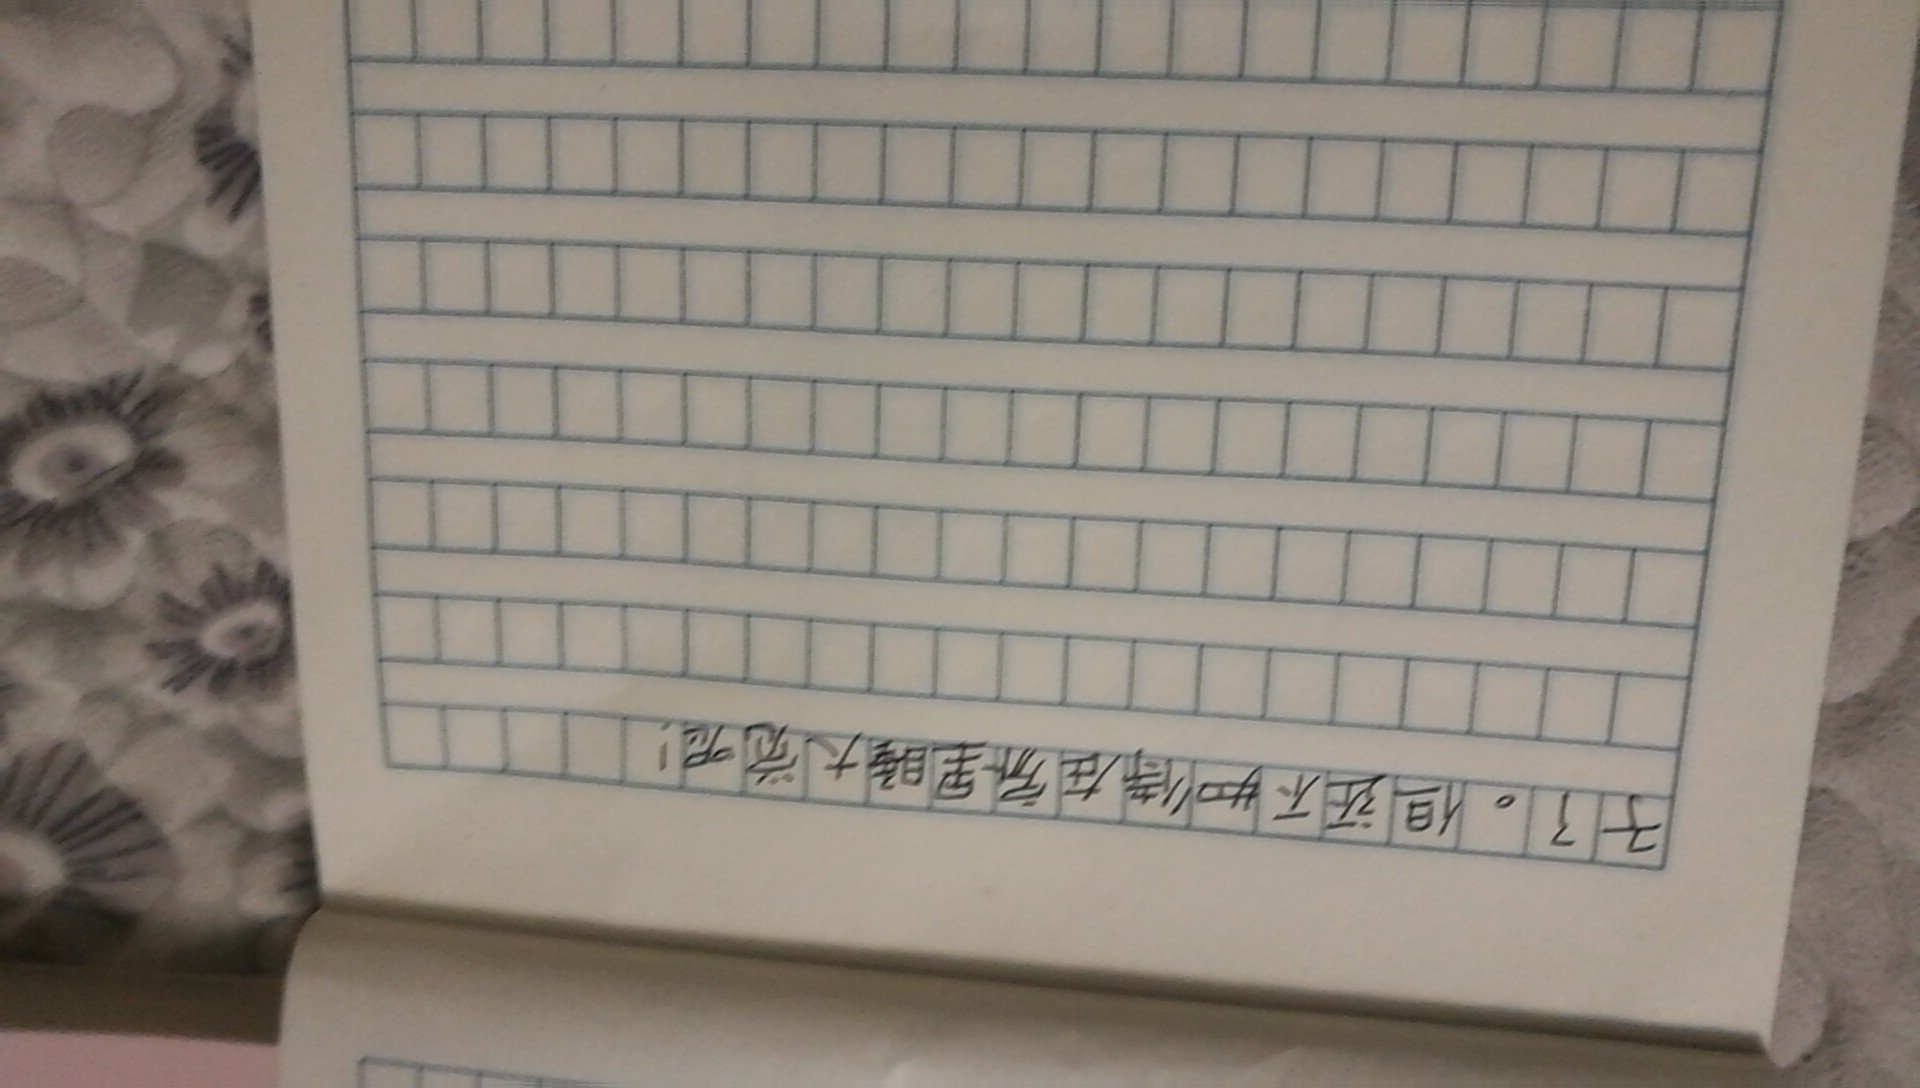 子了。但还不如待在家里睡大觉呢！